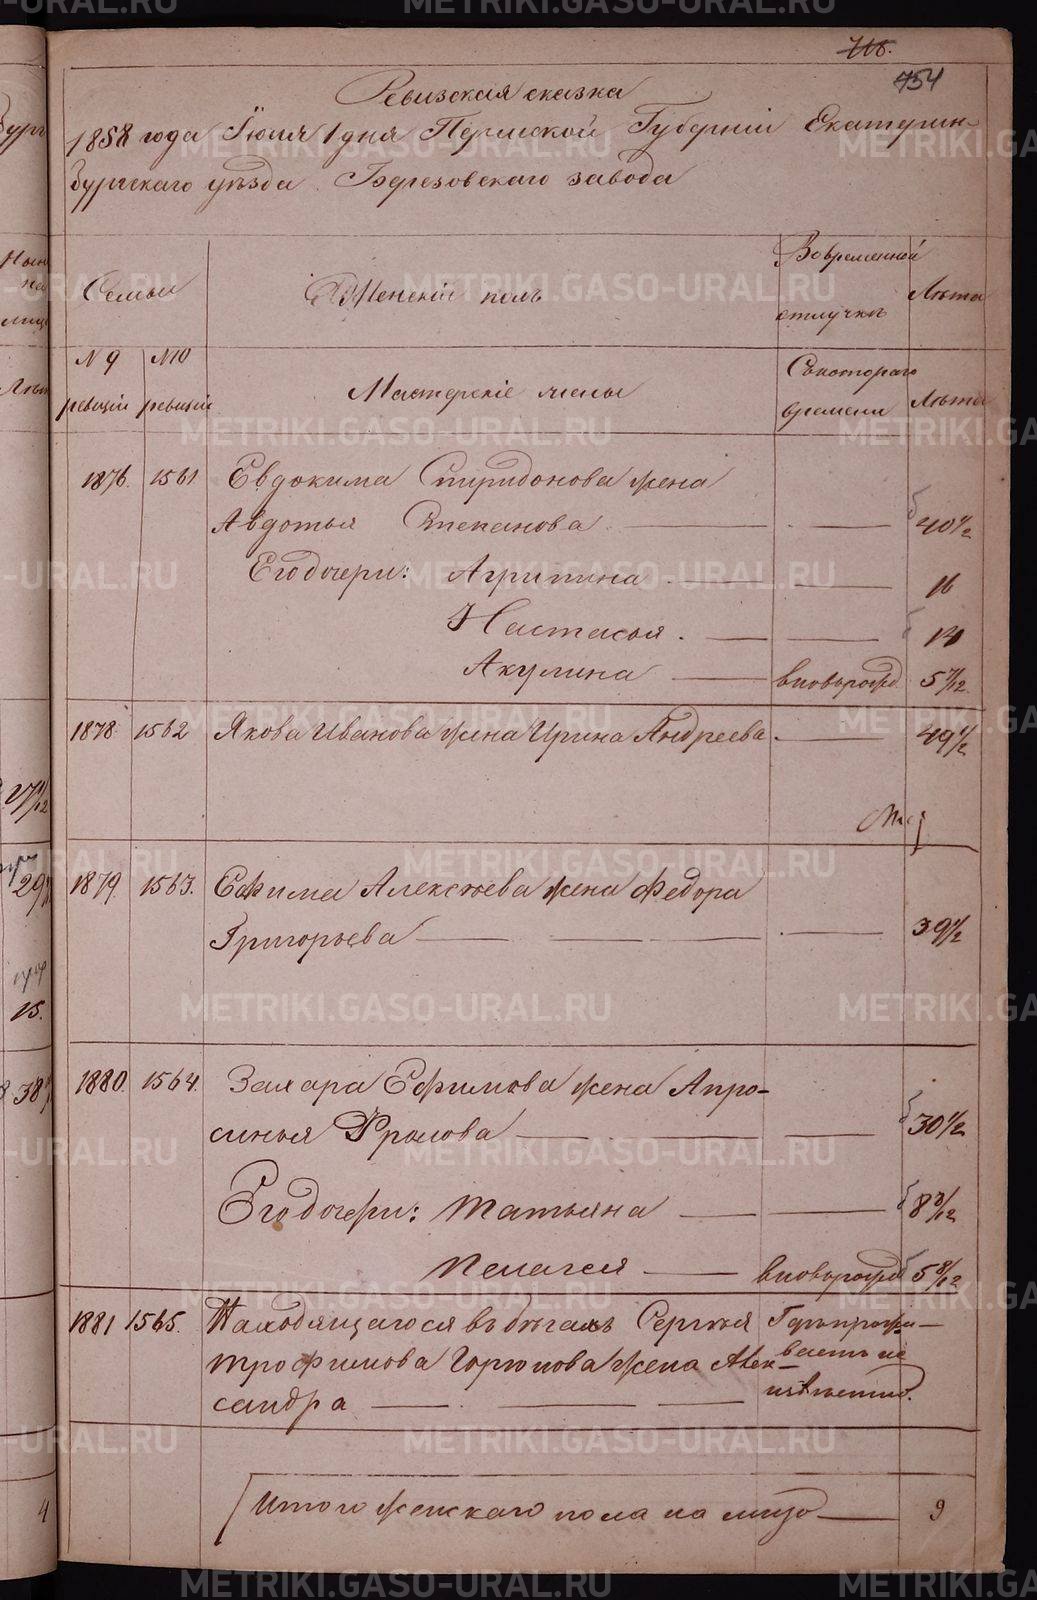 718.
754
Ревизская сказка
1858 года Іюня 1 дня Пермской Губерніи Екатерин-
бургскаго уѣзда Березовскаго завода
Семьи
Женскій полъ
Вовременной
отлучкѣ
Лѣта
№ 9
ревизіи
№10
ревизіи
Мастерскіе жены
Съкотораго
времени
Лѣта
1876. 1561 Евдокима Спиридонова жена
Авдотья Степанова — — 40 1/2
Егодочери: Агрипина — — 16
Настасья — — 14
Акулина — вновьрожд 5 7/12
1878 1562 Якова Иванова жена Ирина Андреева — 49 1/2
1879. 1563. Ефима Алексѣева жена Федора
Григорьева — — — — 39 1/2
1880. 1564. Захара Ефимова жена Апро-
синья Фролова — — — 30 1/2
Егодочери: Татьяна — — 8 3/12
Пелагея — вновьрожд 5 8/12
1881 1565. Находящагося въ бѣгахъ Сергѣя
Трофимова Горюнова жена Алек-
сандра — — —
Гдѣпрожи-
ваетъ не
извѣстно.
Итого женскаго пола на лицо — 9
METRIKI.GASO-URAL.RU